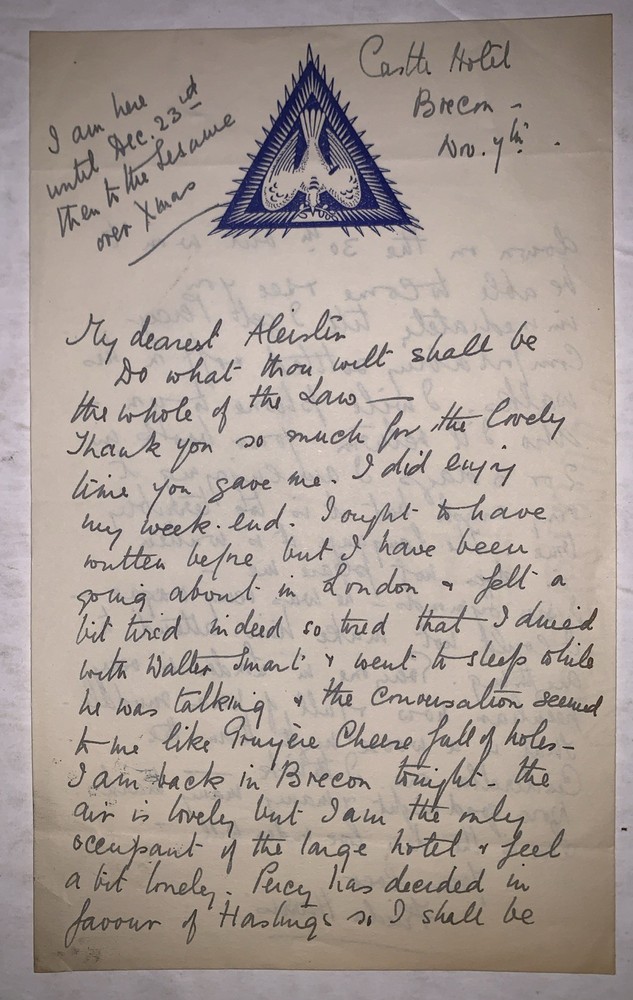 Castle Hotel
Brecon -
Nov. 7th.
I am here
until Dec. 23rd
then to the Sesame
over Xmas
My dearest Aleister
Do what thou wilt shall be
the whole of the Law —
Thank you so much for the lovely
time you gave me. I did enjoy
my week-end. I ought to have
written before but I have been
going about in London & felt a
bit tired indeed so tired that I dined
with Walter Smart & went to sleep while
he was talking & the conversation seemed
to me like Gruyère Cheese full of holes -
I am back in Brecon tonight - the
air is lovely but I am the only
occupant of the large hotel & feel
a bit lonely. Percy has decided in
favour of Hastings so I shall be